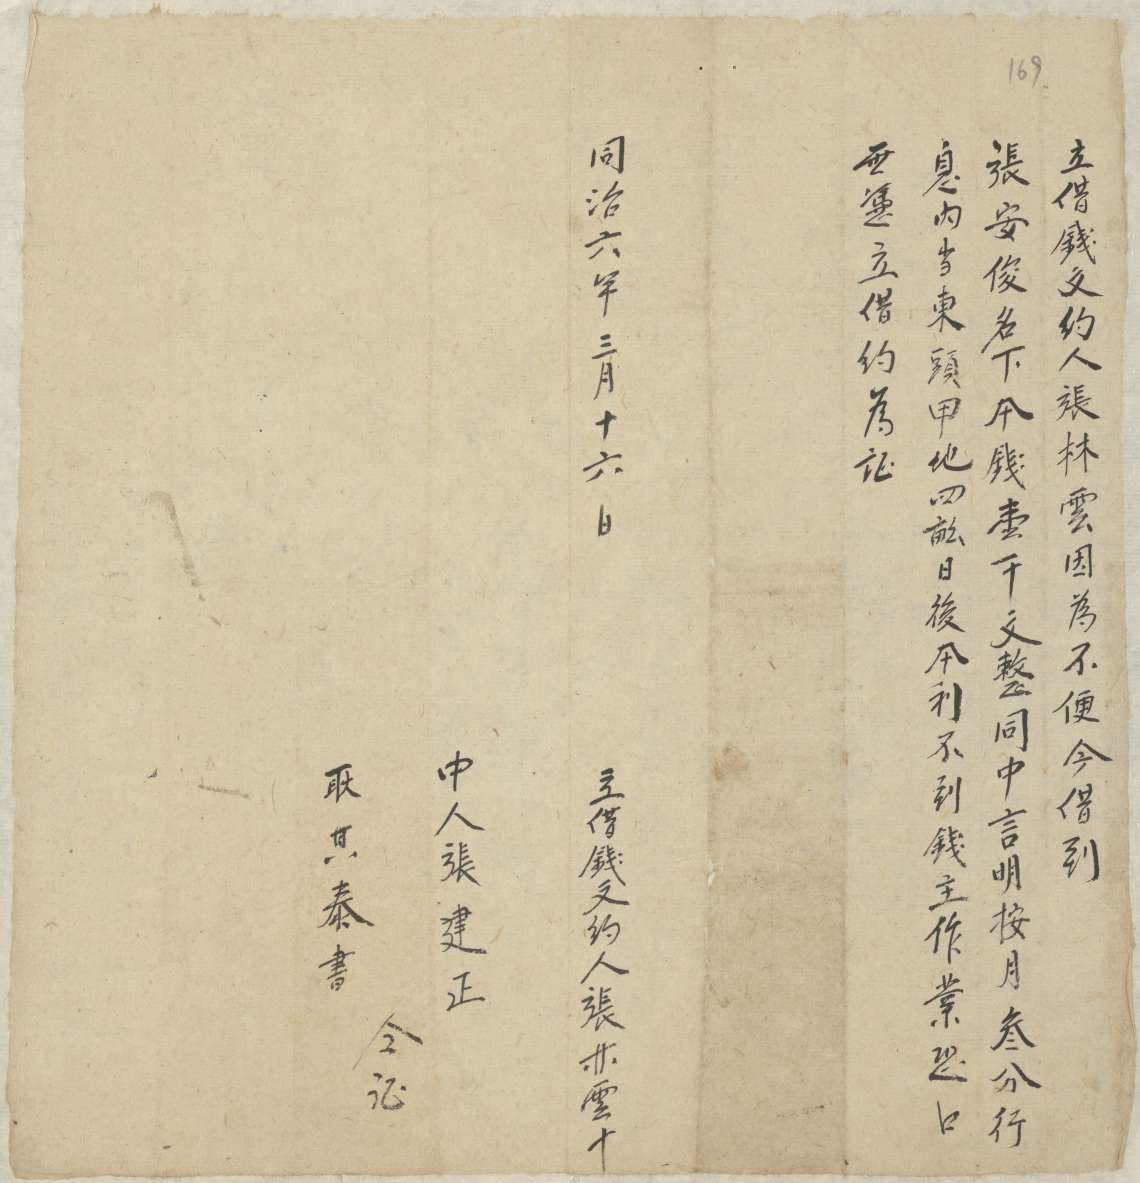 169
立借錢文約人張林雲因為不便今借到
張安俊名下本錢壹千文整同中言明按月叁分行
息內当東頭甲地四畝日後本利不到錢主作業恐口
無憑立借約為証
同治六年三月十六日
立借錢文約人張林雲十
中人張建正
耿其泰書
仝証